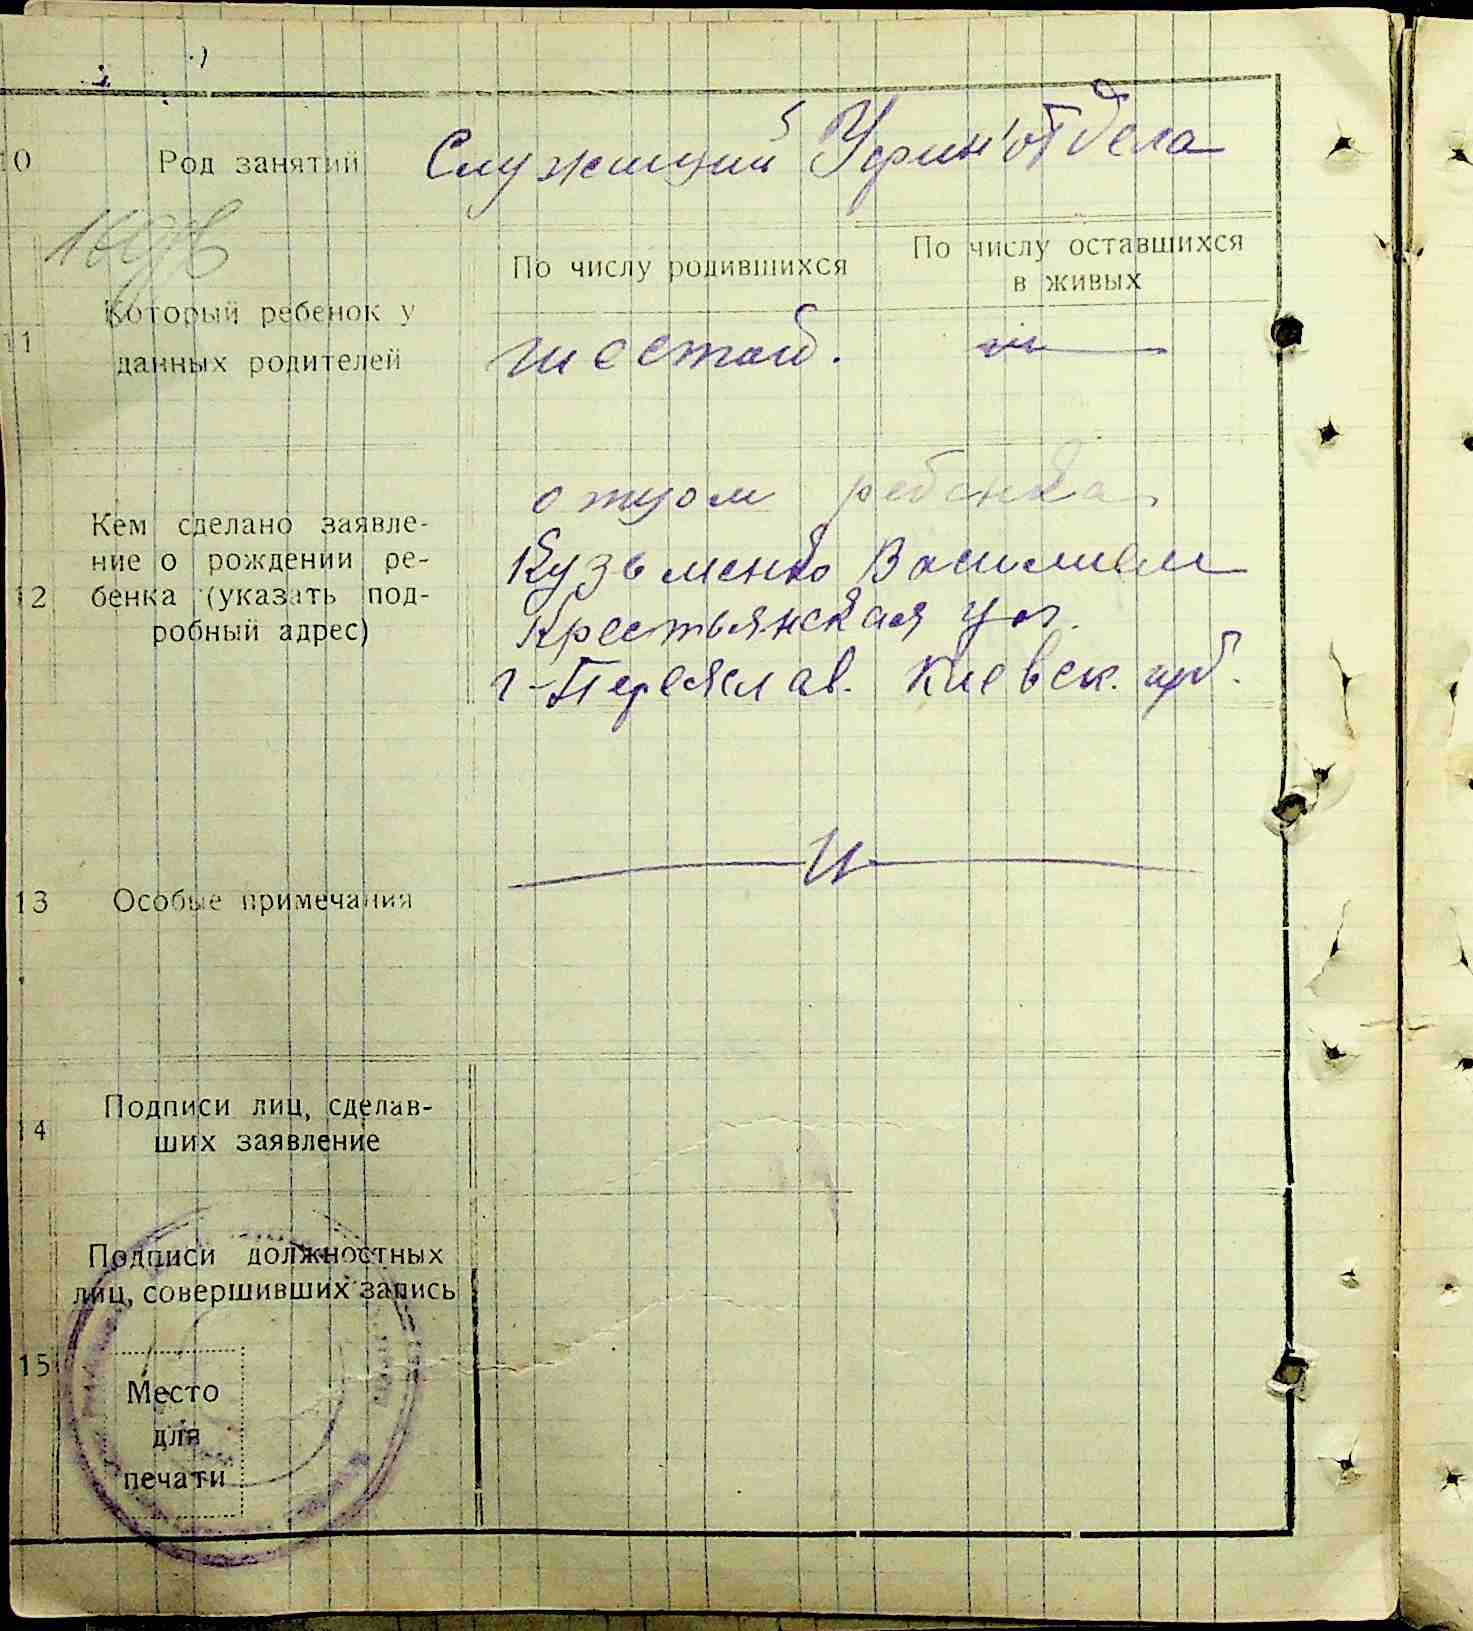 10 Род занятий Служащий Уфин'отдела
По числу родившихся
По числу оставшихся
в живых
11 Который ребенок у
данных родителей
шестой.
12 Кем сделано заявле-
ние о рождении ре-
бенка (указать под-
робный адрес)
отцом ребенка
Кузьменко Василием
Крестьянская ул.
г-Переяслав. Киевск. губ.
13 Особые примечания
14 Подписи лиц, сделав-
ших заявление
Подписи должностных
лиц, совершивших запись
15
Место
для
печати